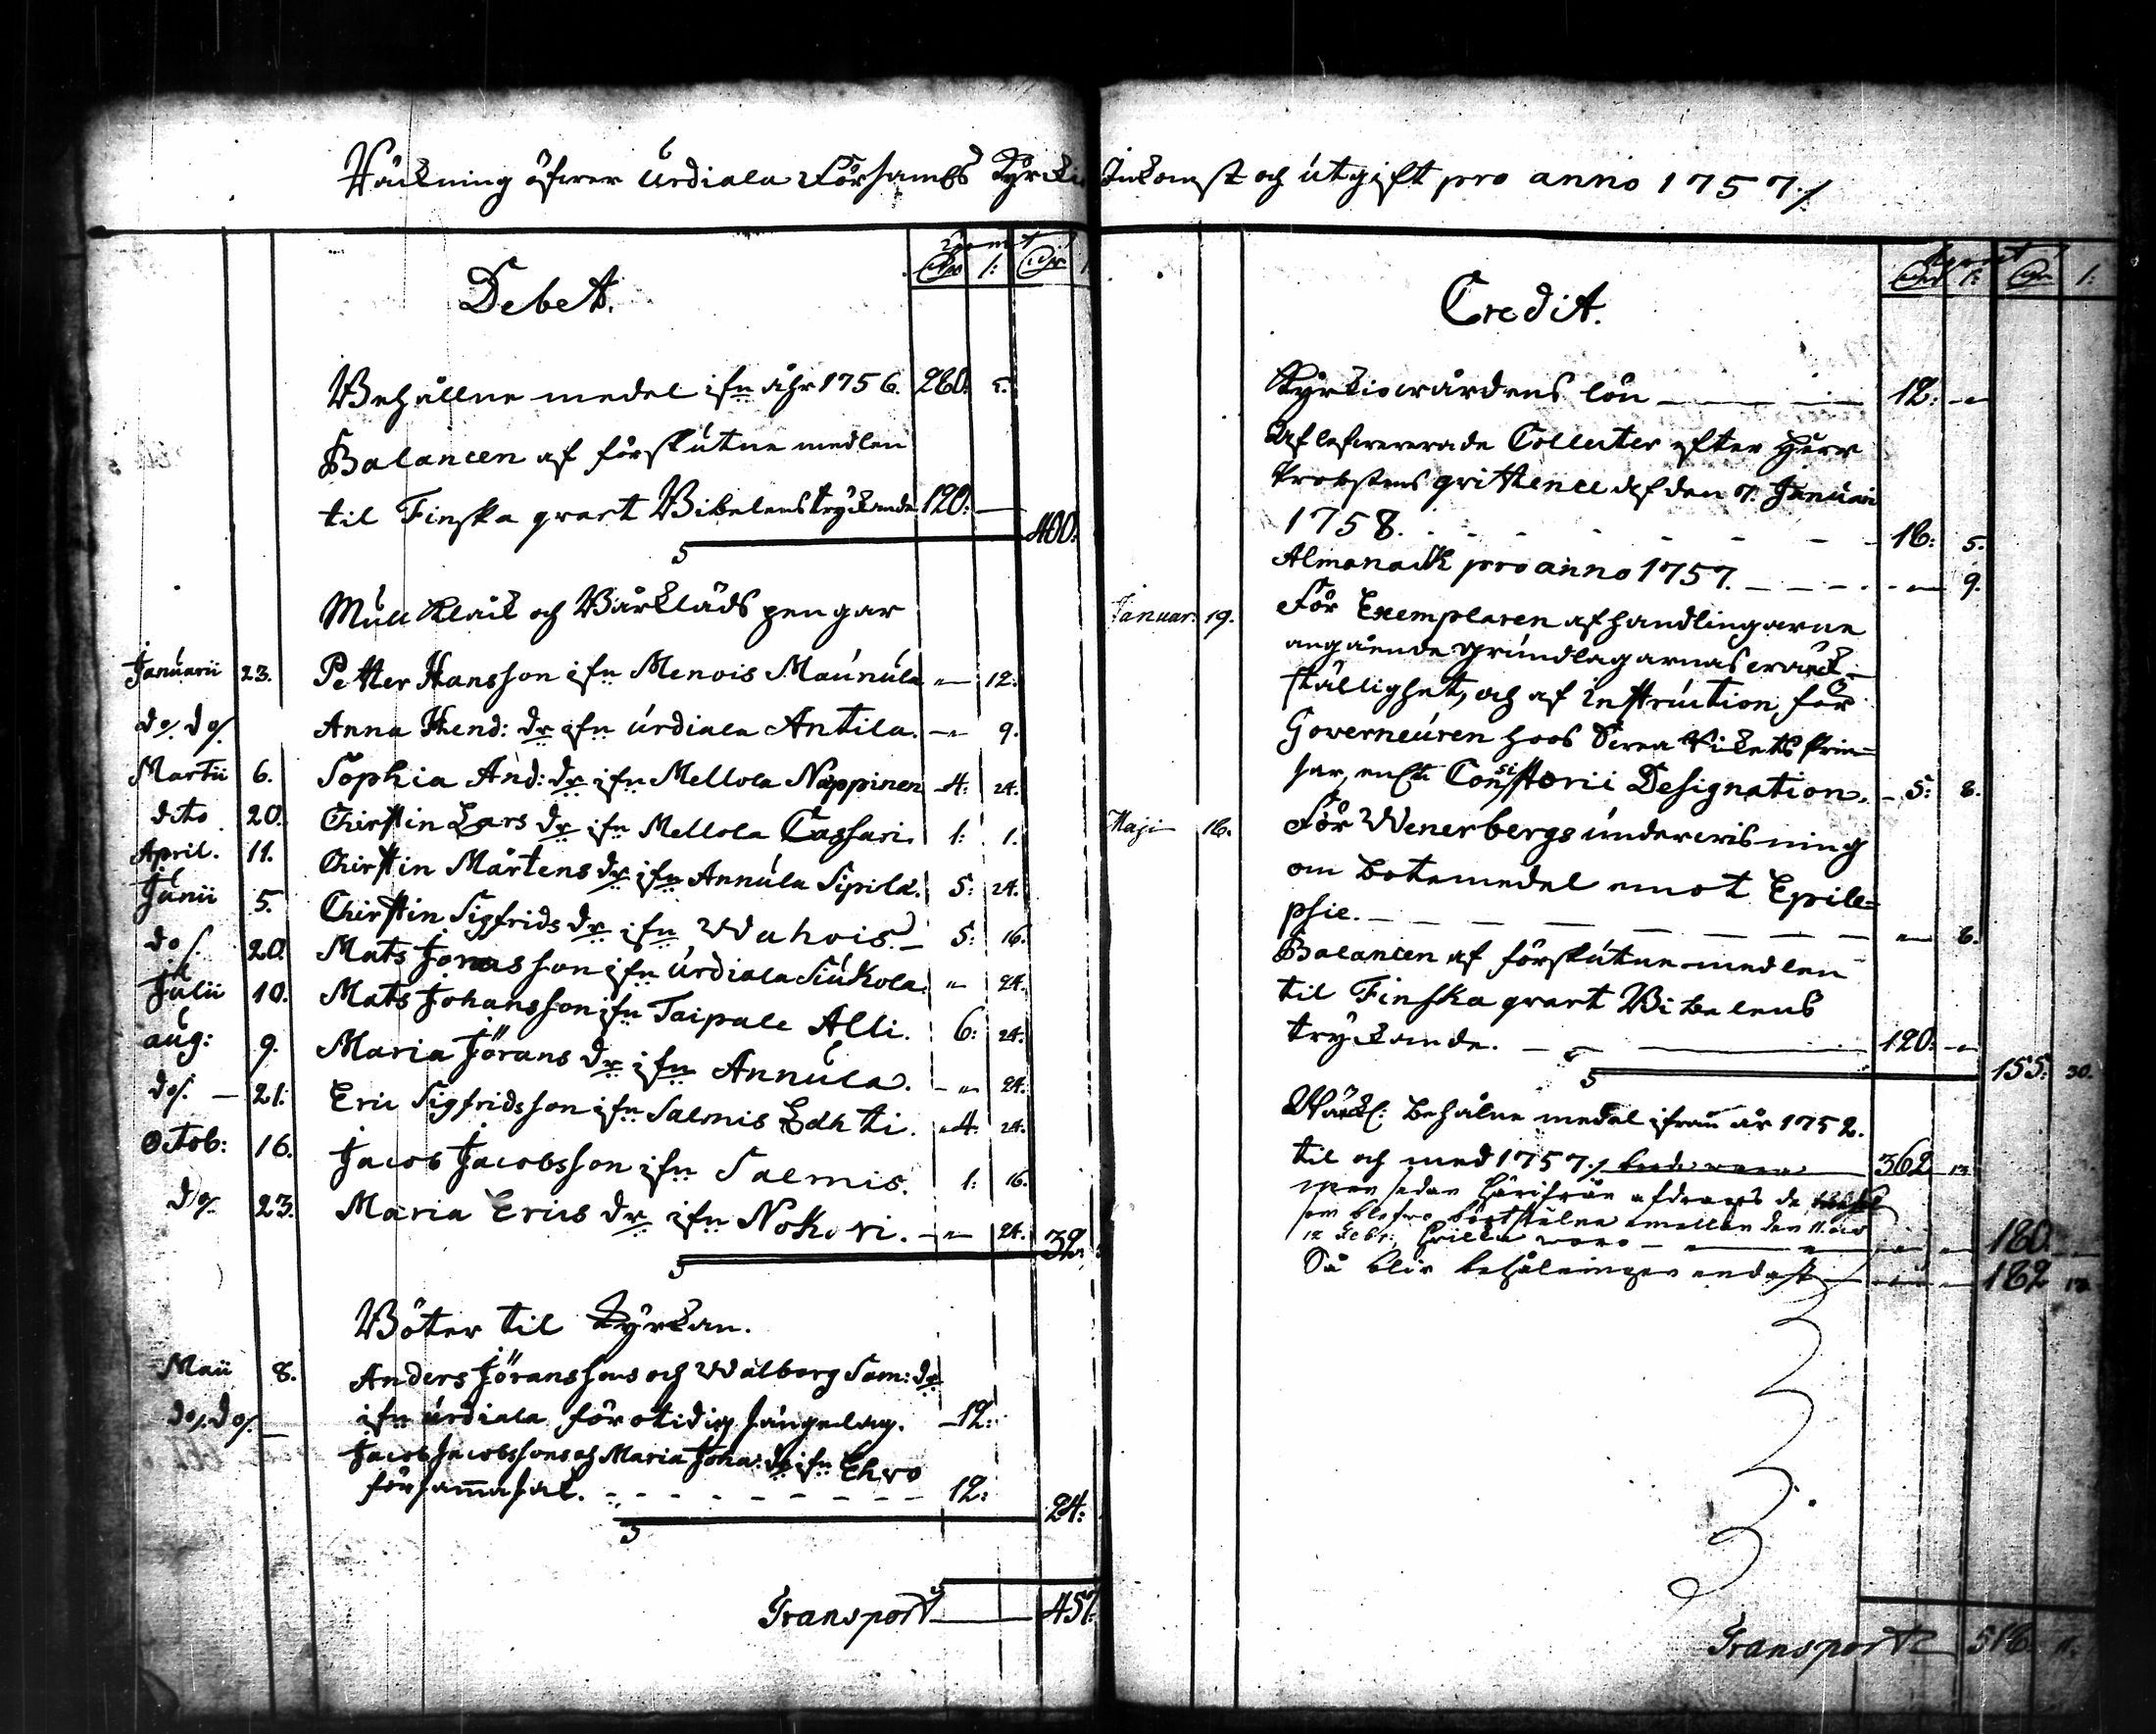 Räckning öfwer Urdiala Försambls Kyrckio Inkomst och utgift pro anno 1757./
Debet.
Behållne medel ifrn åhr 1756. 280: 5.
Balancen af förskutne medlen
til Finska qvart Bibelens tryckande 120: —
400:
Mull Kläk och Bårkläds pengar
Januarii 23. Petter Hansson ifrn Menois Maunula " 12.
do/. do/. Anna Hend: dr ifrn Urdiala Antila. " 9.
Martii 6. Sophia And: dr ifrn Mellola Näppinen 4: 24.
dito 20. Chirstin Lars dr ifrn Mellola Cassari 1: 1.
April. 11. Chirstin Mårtens dr ifrn Annula Sipilä. 5: 24.
Junii 5. Chirstin Sigfrids dr ifrn Wahois. 5: 16.
do/. 20. Mats Jonasson ifrn Urdiala Siukola. " 24.
Julii 10. Mats Johansson ifrn Taipale Alli. 6: 24.
aug: 9. Maria Jörans dr ifrn Annula. " 24.
do/. 21. Eric Sigfridsson ifrn Salmis Lahti. 4: 24.
Octob: 16. Jacob Jacobsson ifrn Salmis. 1: 16.
do/. 23. Maria Erics dr ifrn Nokori. " 24.
32:
Böter til Kyrkan.
Maii 8. Anders Jöranssons och Walborg Sam: dr
ifrn Urdiala för otidig sängelag. 12:
do/. do/. Jacob Jacobssons och Maria Joha: dr ifrn Ehro
försammahal. 12:
24:
Transport 457:
Credit.
Kyrkiowärdens lön 12: "
Aflefwererade Collecter efter Herr
Probstens qvittence af den 7. Januari
1758. 16: 5.
Almanack pro anno 1757. " 9.
Januar. 19. För Exemplaren af handlingarne
angående grundlagarnas wärck-
ställighet, och af instruction för
Governeuren hoos Swea Rikets Prin=
sar, enl. Consistorii Designation. 5: 8.
Maji 16. För Wenerbergs underwisning
om botemedel emot Epile=
psie. " 8.
Balancen af förskutne medlen
til Finska qvart Bibelens
tryckande. 120: "
155: 30.
Wärckl: behålne medel ifrån år 1752.
til och med 1757./ 362 13.
men sedan härifrån afdrages de
som blefwo bortstulne emellan den 11. och
12 Febr: hvilka woro 180
Så blir behålningen endast 182 13.
Transport 518 11.